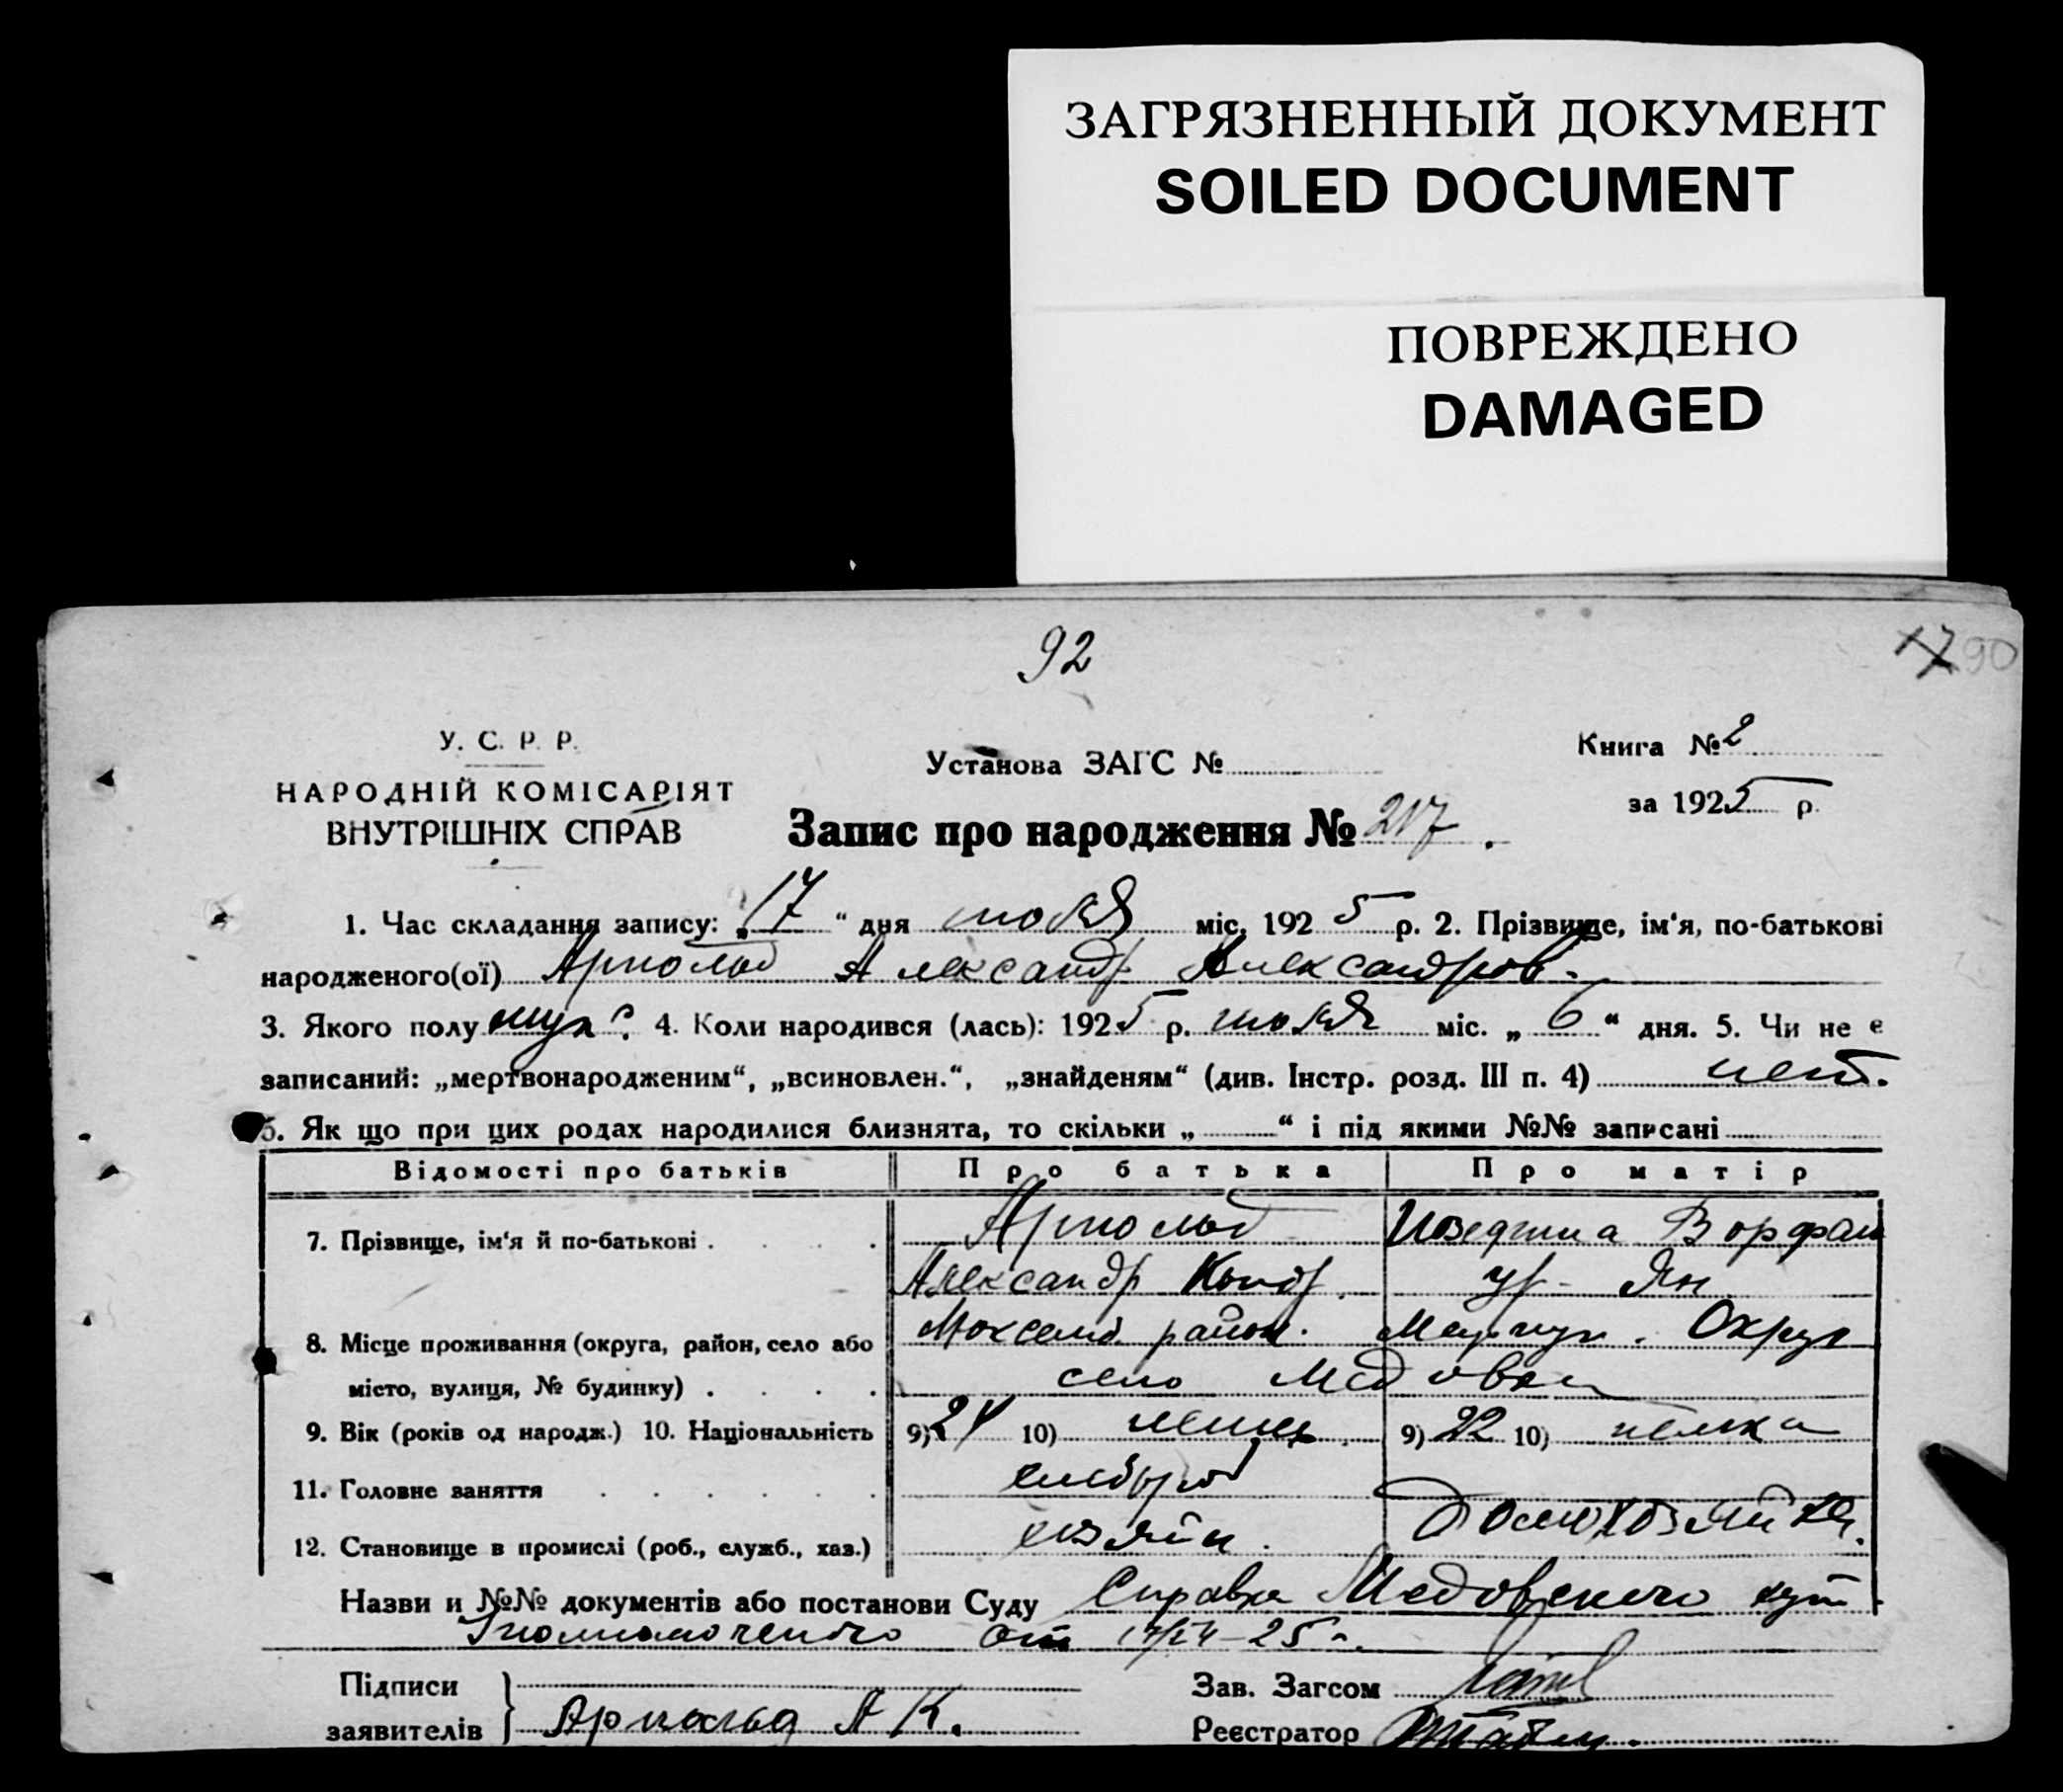 ЗАГРЯЗНЕННЫЙ ДОКУМЕНТ
SOILED DOCUMENT
ПОВРЕЖДЕНО
DAMAGED
92
90
У. С. Р. Р.
НАРОДНІЙ КОМІСАРІЯТ
ВНУТРІШНІХ СПРАВ
Установа ЗАГС №
Книга № 2
за 1925 р.
Запис про народження № 217.
1. Час складання запису: „17“ дня июля міс. 1925 р. 2. Прізвище, ім‘я, по-батькові
народженого(ої) Арнольд Александр Александров.
3. Якого полу муж. 4. Коли народився (лась): 1925 р. июля міс. „6“ дня. 5. Чи не е
записаний: „мертвонародженим“, „всиновлен.“, „знайденям“ (див. Інстр. розд. III п. 4) нет.
6. Як що при цих родах народилися близнята, то скільки „ “ і під якими №№ записані
Відомості про батьків Про батька Про матір
7. Прізвище, ім‘я й по-батькові Арнольд
Александр Конд. ур. Ян.
8. Місце проживання (округа, район, село або район. Округ
місто, вулиця, № будинку) село
9. Вік (років од народж.) 10. Національність 9) 24 10) немец 9) 22 10) немка
11. Головне заняття хлебороб
12. Становище в промислі (роб., служб., хаз.) хозяин. домохозяйка.
Назви и №№ документів або постанови Суду Справка Медовского
от 25 г.
Підписи
заявителів Арнольд А К.
Зав. Загсом
Реєстратор